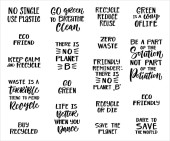 NO SINGLE
USE PLASTIC
GO green
TO BREATHE
Clean
RECYCLE
REDUCE
REUSE
GREEN
is a way
OF LIFE
ECO
FRIEND
THERE IS
NO
PLANET
"B"
ZERO
WASTE
BE A PART
OF THE
Solution
NOT PART OF
the Pollution
KEEP CALM
AND RECYCLE
FRIENDLY
REMINDER:
THERE IS
NO
PLANET
B
WASTE IS A
Terrible
THING TO MIND
Recycle
GO
GREEN
RECYCLE
OR DIE
ECO
FRIENDLY
LIFE IS
Better
WHEN YOU
Dance
BUY
RECYCLED
SAVE THE
PLANET
DARE TO
SAVE
THE WORLD